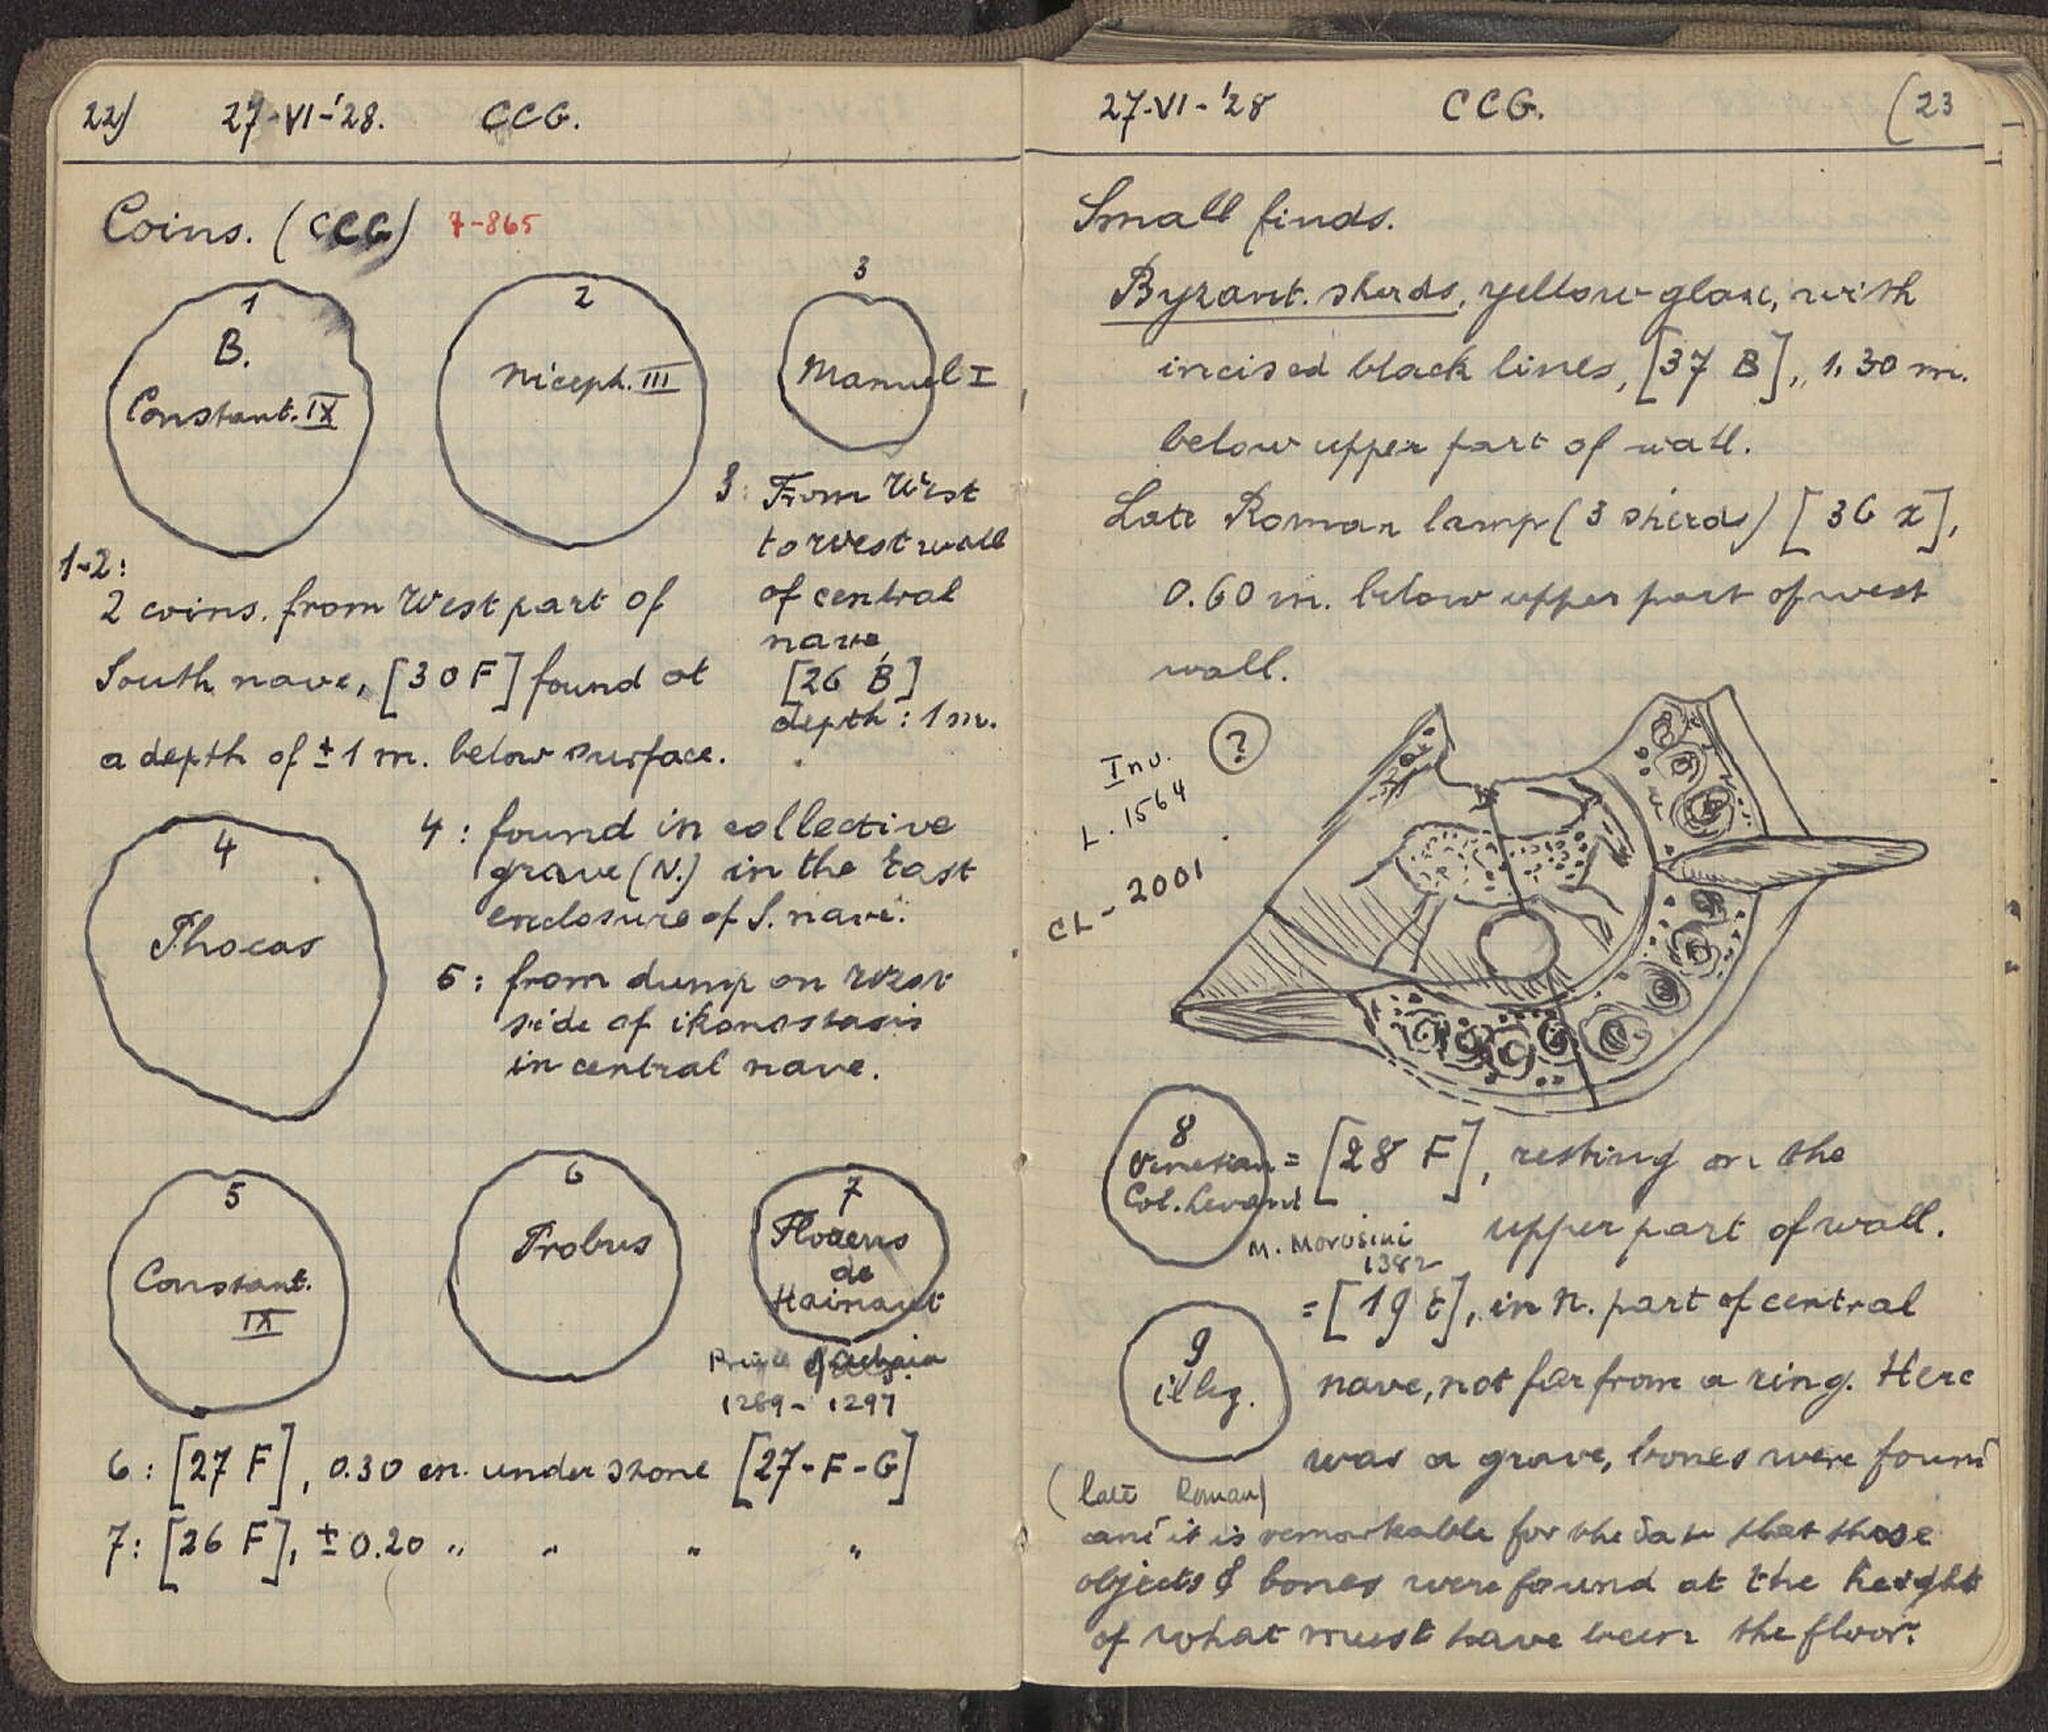 22) 27-VI-'28. CCG.
Coins. (CCG) 7-865
1
B.
Constant. IX
2
Niceph. III
3
Manuel I
3: From West
to west wall
of central
nave,
[26 B]
depth: 1 m.
1-2:
2 coins. from West part of
South nave, [30 F] found at
a depth of ± 1 m. below surface.
4
Phocas
4: found in collective
grave (N.) in the East
enclosure of S. nave.
5: from dump on West
side of ikonostasis
in central nave.
5
Constant.
IX
6
Probus
7
Florens
de
Hainaut
Prince of Achaia
1289-1297
6: [27 F], 0.30 m. under stone [27-F-G]
7: [26 F], ± 0.20 " " " "
27-VI-'28 CCG. (23
Small finds.
Byzant. sherds, yellow glaze, with
incised black lines, [37 B], 1.30 m.
below upper part of wall.
Late Roman lamp (3 sherds) [36 x],
0.60 m. below upper part of west
wall.
Inv. ?
L. 1564
CL-2001
8
Venetian = [28 F], resting on the
Col. Levant
upper part of wall.
M. Morosini
1382
9
illeg.
= [19 t], in N. part of central
nave, not far from a ring. Here
was a grave, bones were found
(late Roman)
and it is remarkable for the date that these
objects & bones were found at the height
of what must have been the floor.